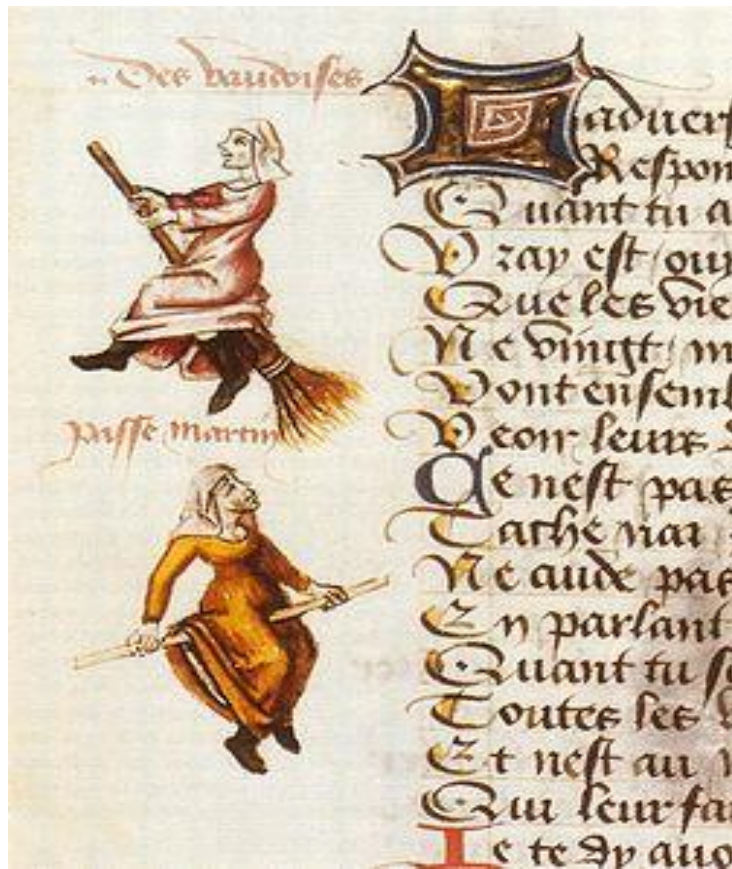 Des vaudoises
passe martin
Ladvers
Respon
Quant tu a
Vray est / ouy
Que les vie
Ne vingt m
Vont ensembl
Veoir leurs
Ce nest pas
Cache nar
Ne cuide pas
En parlant
Quant tu se
Toutes les
Et nest au
Qui leur fa
Je te dy auo